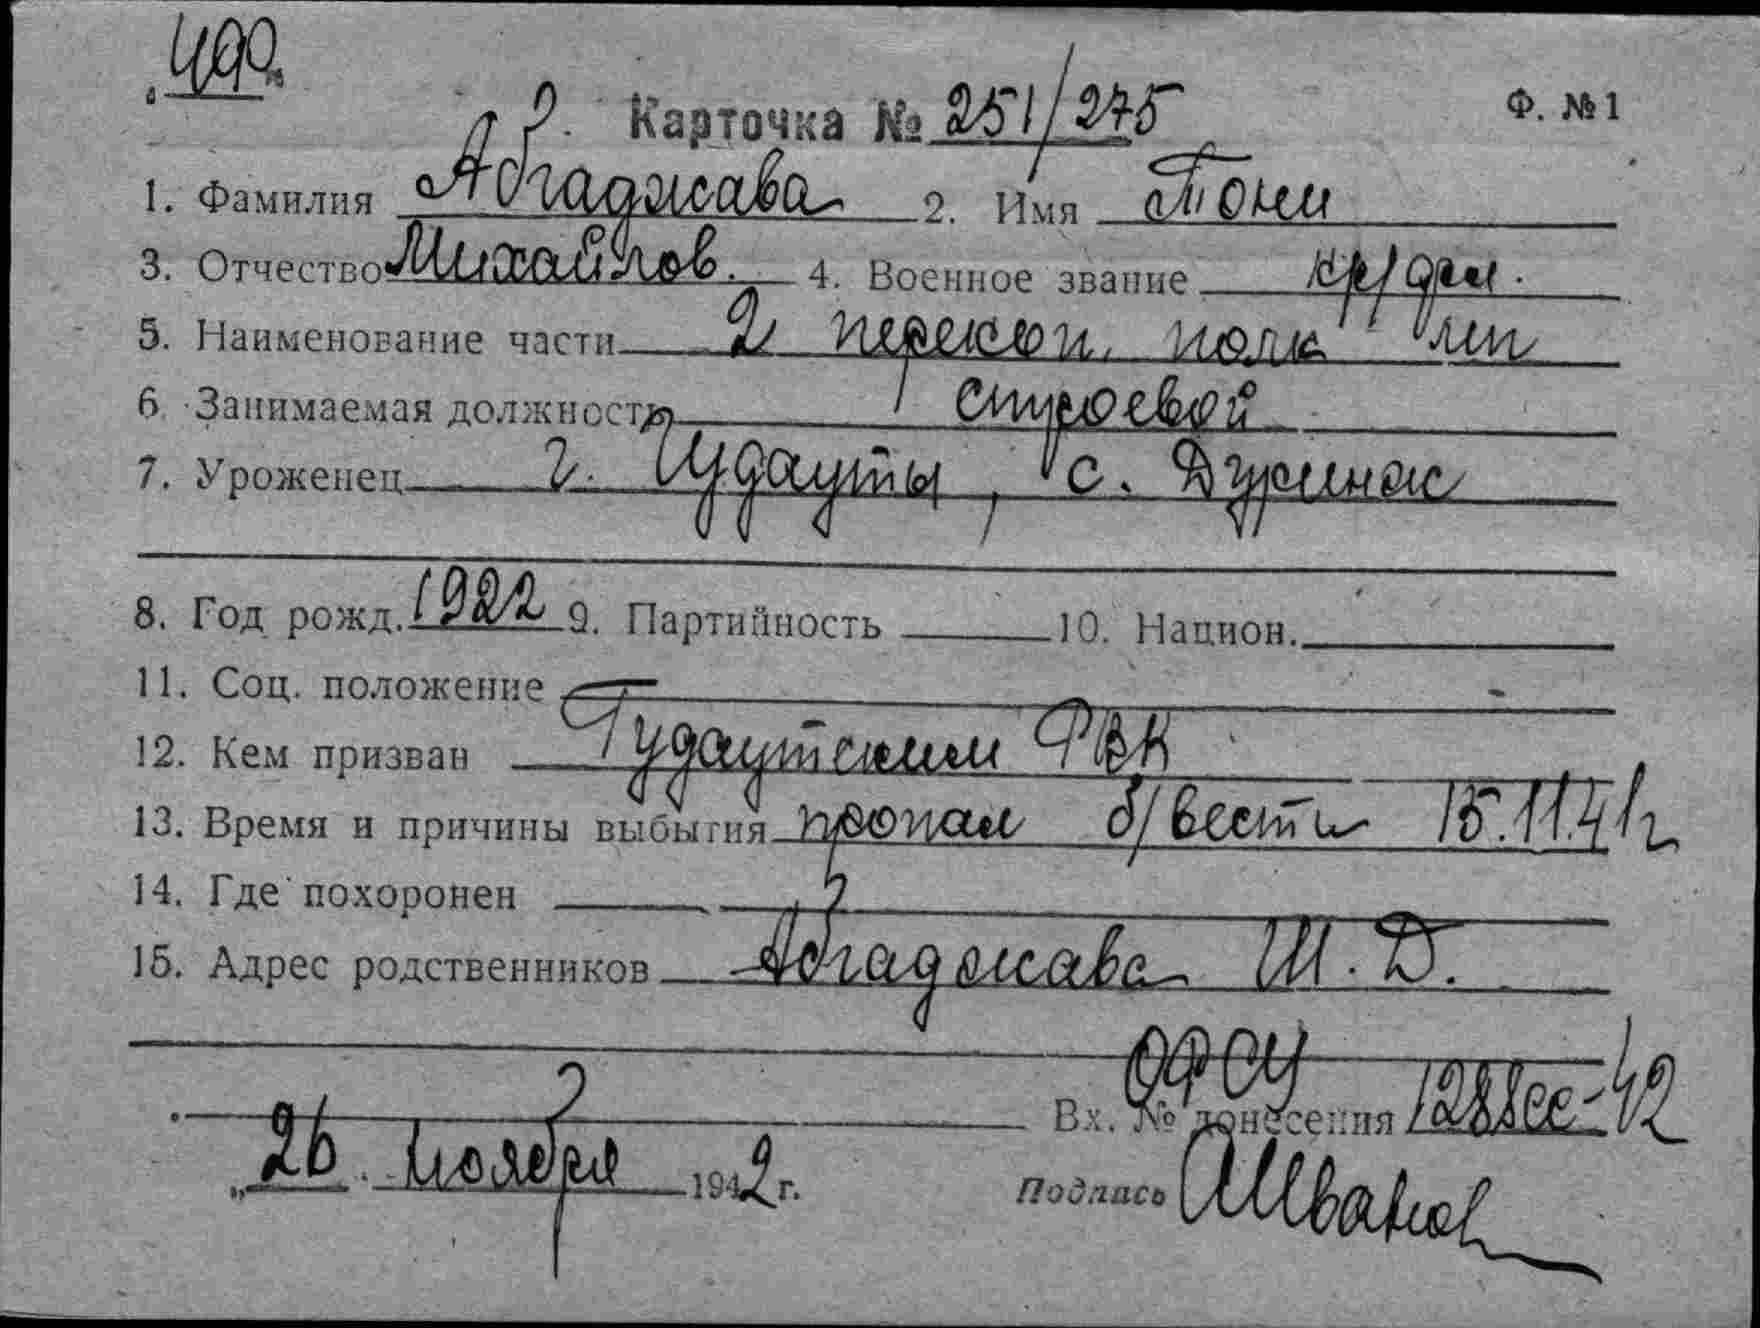 Ф. № 1
Карточка № 251/275
1. Фамилия Абгаджава 2. Имя Тони
3. Отчество Михайлов. 4. Военное звание кр/фл.
5. Наименование части 2 перекоп. полк мп
6. Занимаемая должность строевой
7. Уроженец г. Гудауты, с.
8. Год рожд. 1922 9. Партийность 10. Национ.
11. Соц. положение
12. Кем призван Гудаутским РВК
13. Время и причины выбытия пропал б/вести 15.11.41г
14. Где похоронен
15. Адрес родственников Абгаджава Ш. Д.
Вх. № донесения 1288сс-42
„26 ноября 1942 г.
Подпись